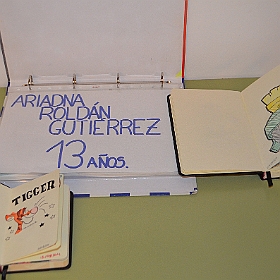 ARIADNA
ROLDÁN
GUTIERREZ
13 AÑOS.
TIGGER